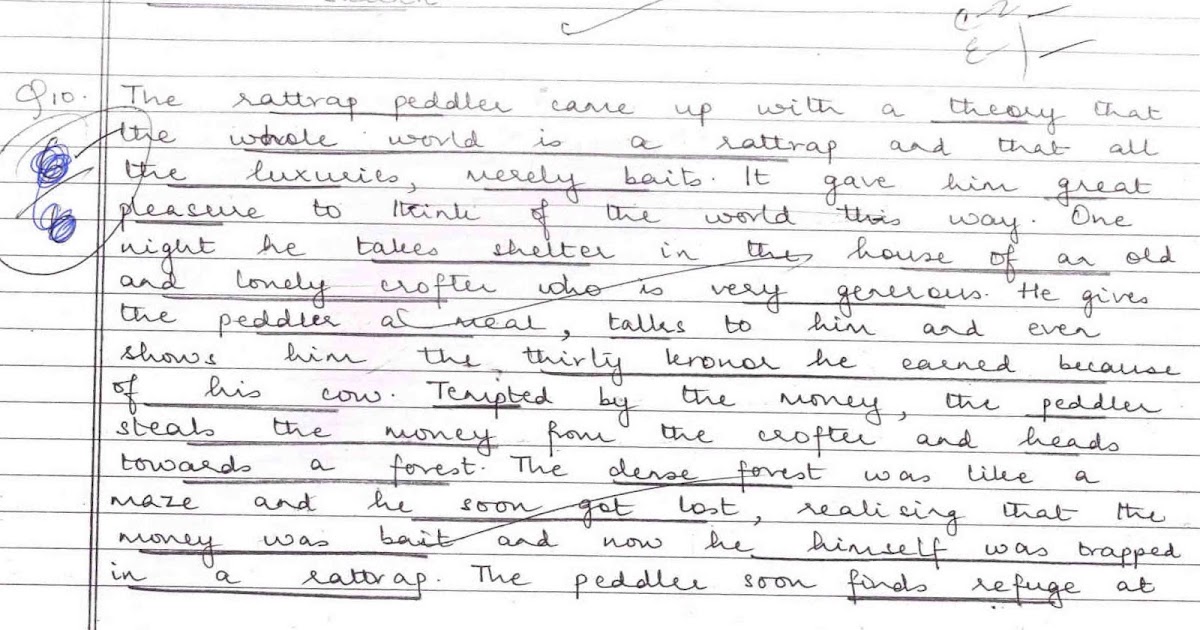 Q10. The rattrap peddler came up with a theory that
the whole world is a rattrap and that all
the luxuries, merely baits. It gave him great
pleasure to think of the world this way. One
night he takes shelter in the house of an old
and lonely crofter who is very generous. He gives
the peddler a meal, talks to him and even
shows him the thirty kronor he earned because
of his cow. Tempted by the money, the peddler
steals the money from the crofter and heads
towards a forest. The dense forest was like a
maze and he soon got lost, realising that the
money was bait and now he himself was trapped
in a rattrap. The peddler soon finds refuge at